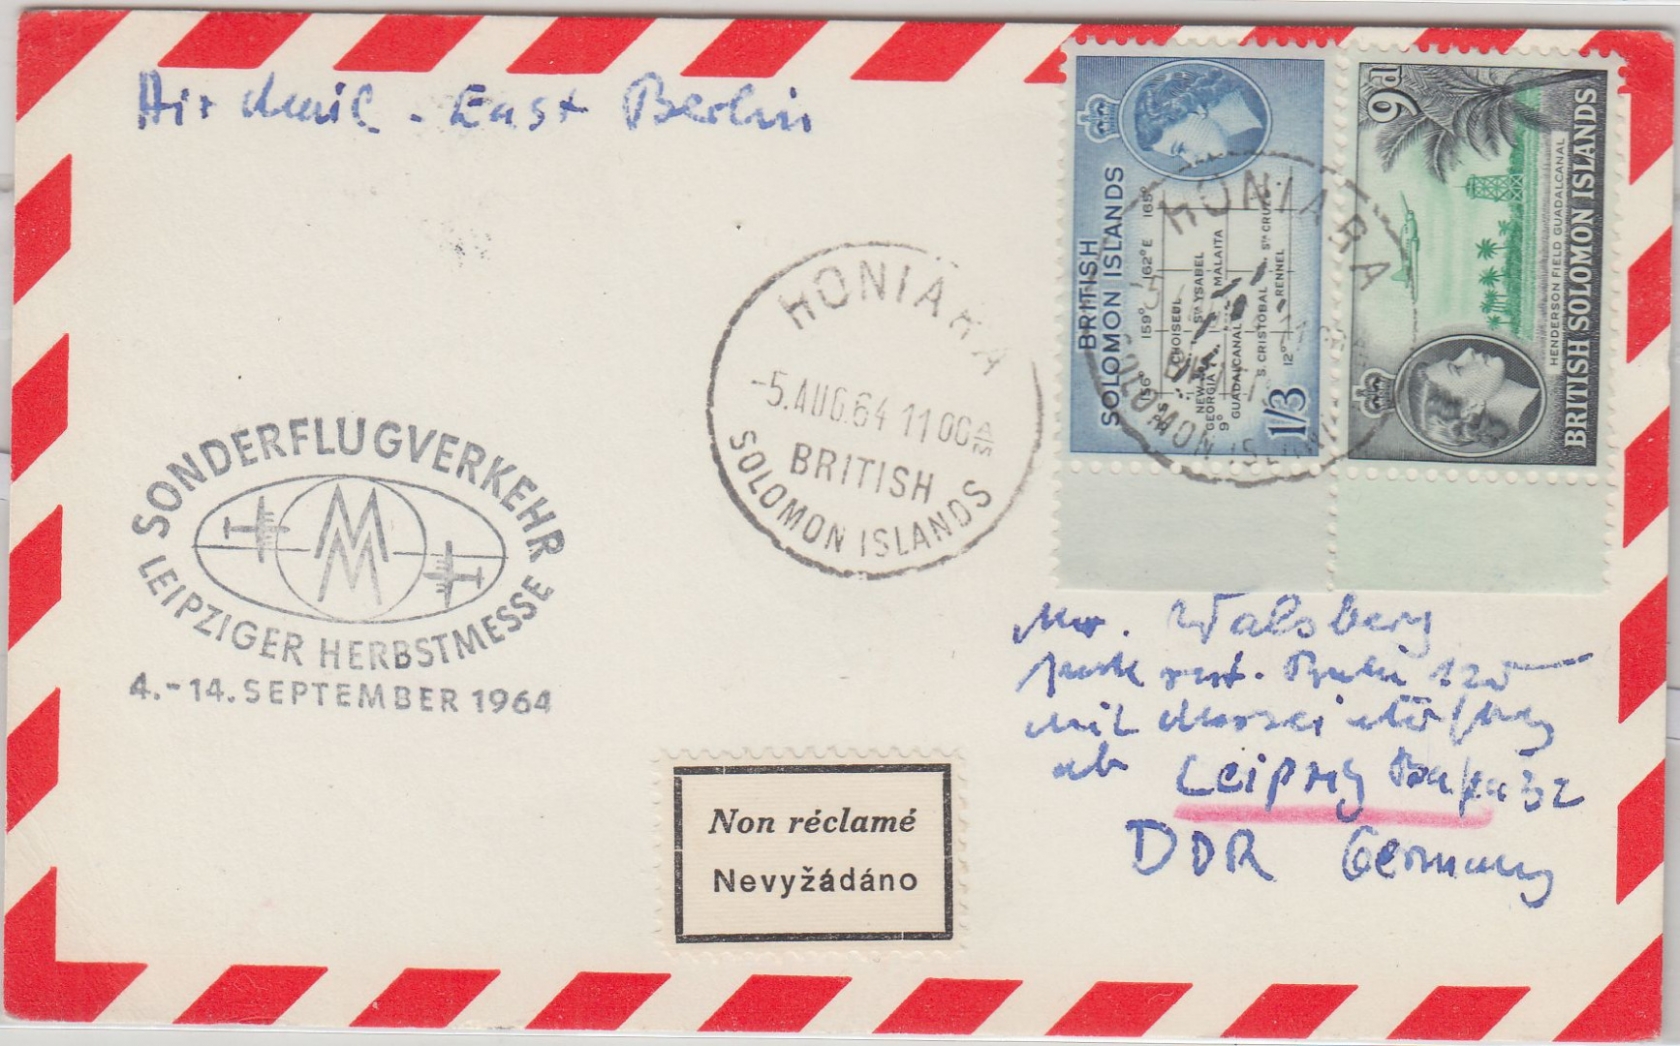 Air Mail - East Berlin
BRITISH
SOLOMON ISLANDS
156° 159° 162°E 165°
CHOISEUL
STA YSABEL
MALAITA
STA CRUZ
NEW GEORGIA
GUADALCANAL
S. CRISTOBAL
RENNEL
9°
12°
1/3
9d
HENDERSON FIELD GUADALCANAL
BRITISH SOLOMON ISLANDS
HONIARA
SOLOMON ISLANDS
HONIARA
-5.AUG.64 11 00 AM
BRITISH
SOLOMON ISLANDS
SONDERFLUGVERKEHR
MM
LEIPZIGER HERBSTMESSE
4.-14. SEPTEMBER 1964
Mr. Walsberg
rest. Berlin 120
mit
ab Leipzig
DDR Germany
Non réclamé
Nevyžádáno